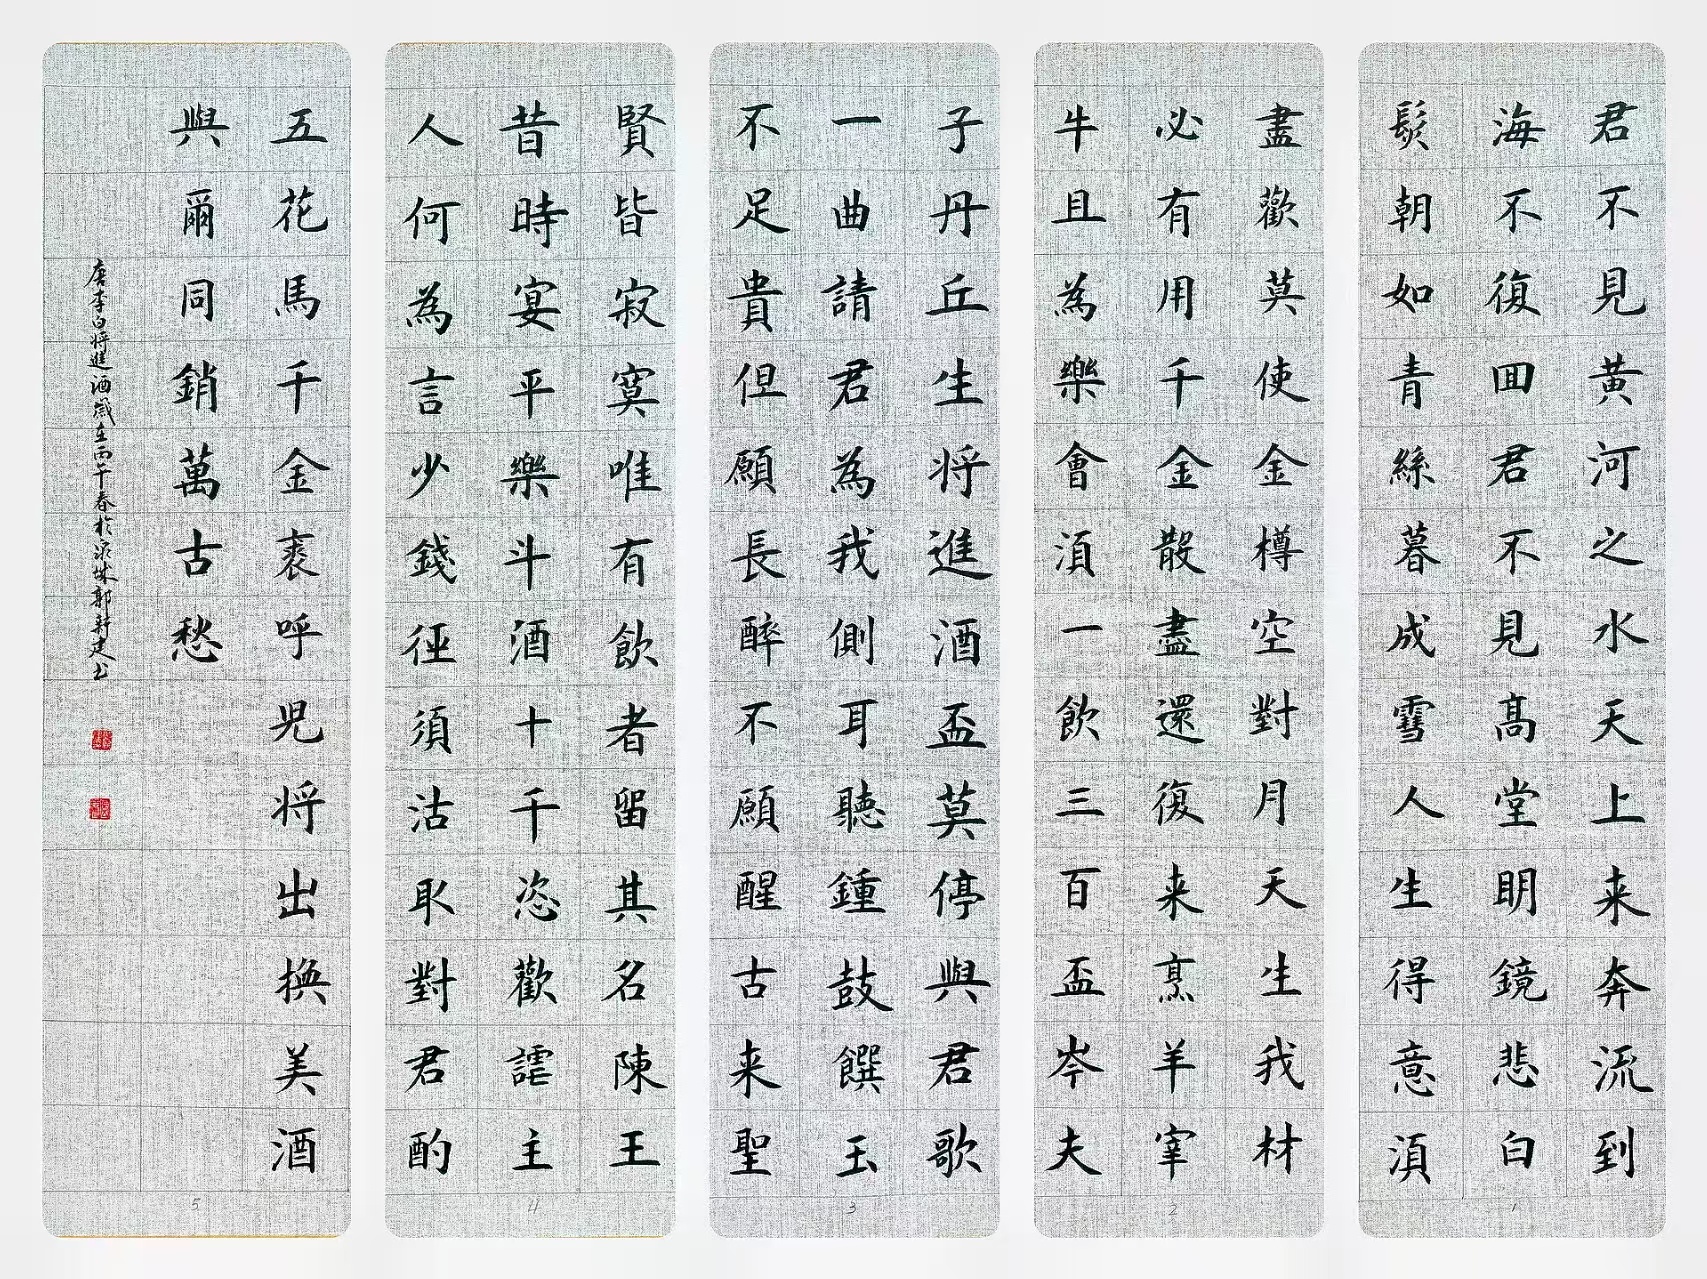 君不見黄河之水天上来奔流到
海不復囬君不見髙堂明鏡悲白
髮朝如青絲暮成雪人生得意須
1
盡歡莫使金樽空對月天生我材
必有用千金散盡還復来烹羊宰
牛且為樂會須一飲三百盃岑夫
2
子丹丘生将進酒盃莫停與君歌
一曲請君為我側耳聽鍾鼓饌玉
不足貴但願長醉不願醒古来聖
3
賢皆寂寞唯有飲者留其名陳王
昔時宴平樂斗酒十千恣歡謔主
人何為言少錢徑須沽取對君酌
4
五花馬千金裘呼児将出換美酒
與爾同銷萬古愁
5
唐李白将進酒歲在丙午春於泉城郭新建书